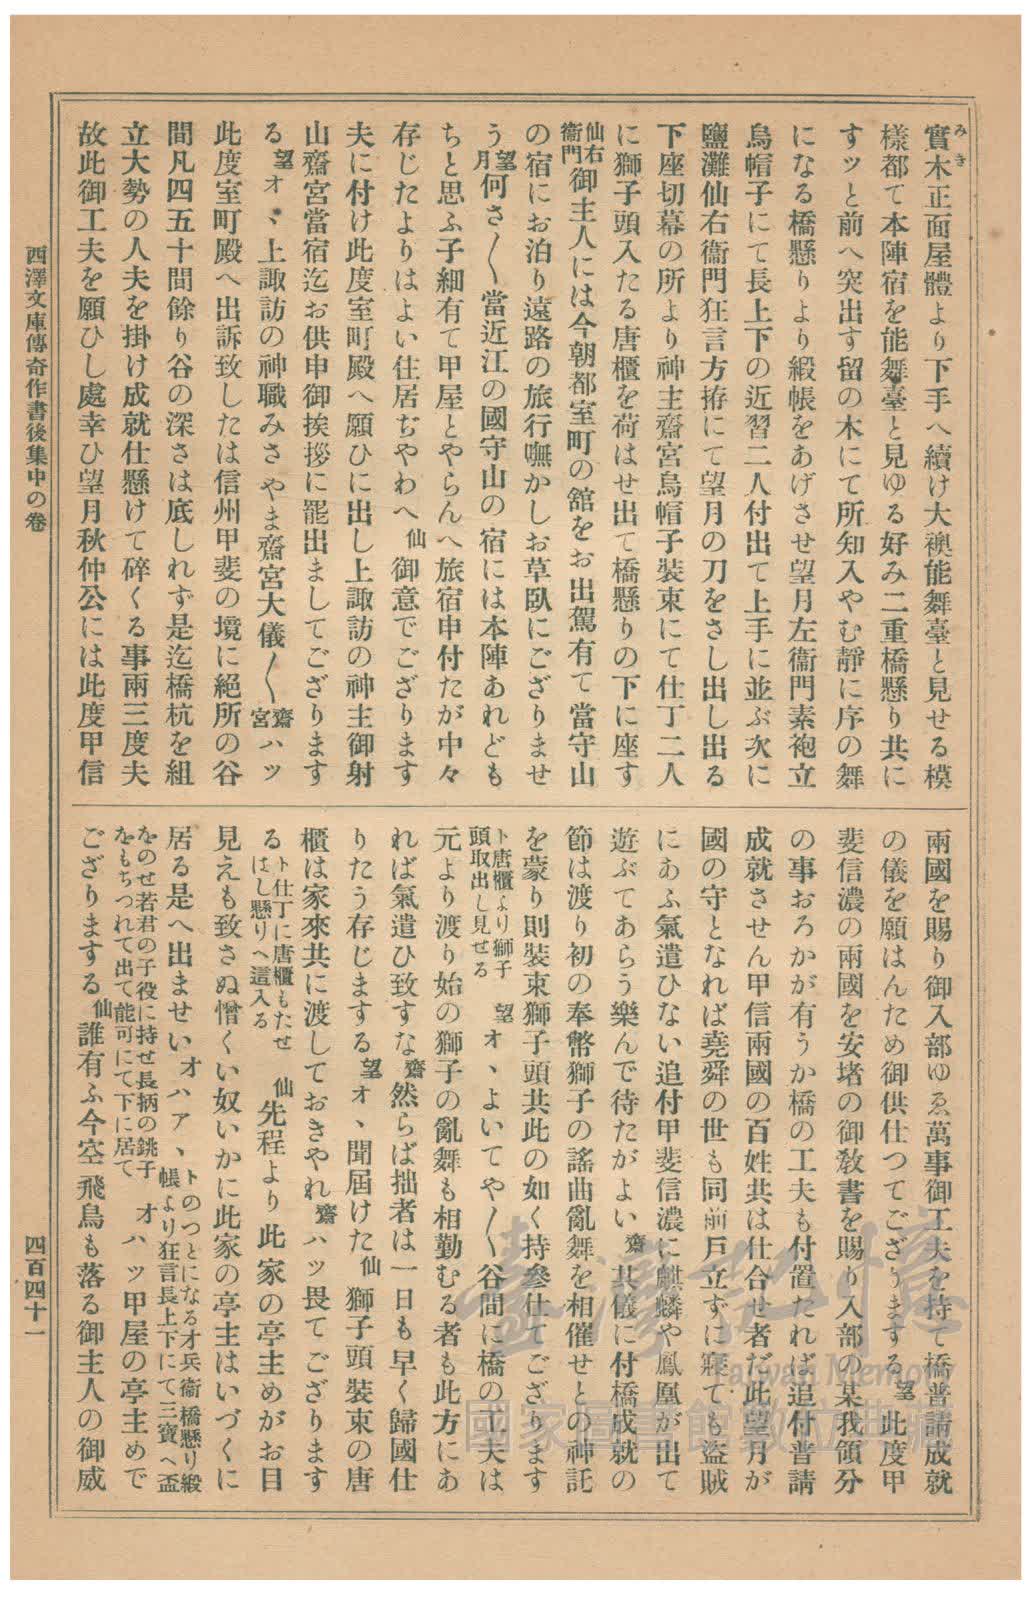 實木正面屋體より下手へ續け大襖能舞臺と見せる模
みき
樣都て本陣宿を能舞臺と見ゆる好み二重橋懸り共に
すッと前へ突出す留の木にて所知入やむ靜に序の舞
になる橋懸りより緞帳をあげさせ望月左衞門素袍立
烏帽子にて長上下の近習二人付出て上手に並ぶ次に
鹽灘仙右衞門狂言方拵にて望月の刀をさし出し出る
下座切幕の所より神主齋宮烏帽子裝束にて仕丁二人
に獅子頭入たる唐櫃を荷はせ出て橋懸りの下に座す
仙右衞門御主人には今朝都室町の舘をお出駕有て當守山
の宿にお泊り遠路の旅行嘸かしお草臥にござりませ
う望月何さ〳〵當近江の國守山の宿には本陣あれども
ちと思ふ子細有て甲屋とやらんへ旅宿申付たが中々
存じたよりはよい住居ぢやわへ仙御意でござります
夫に付け此度室町殿へ願ひに出し上諏訪の神主御射
山齋宮當宿迄お供申御挨拶に罷出ましてござります
る望オヽ上諏訪の神職みさやま齋宮大儀〳〵齋宮ハッ
此度室町殿へ出訴致したは信州甲斐の境に絕所の谷
間凡四五十間餘り谷の深さは底しれず是迄橋杭を組
立大勢の人夫を掛け成就仕懸けて碎くる事兩三度夫
故此御工夫を願ひし處幸ひ望月秋仲公には此度甲信
兩國を賜り御入部ゆゑ萬事御工夫を持て橋普請成就
の儀を願はんため御供仕つてござりまする望此度甲
斐信濃の兩國を安堵の御敎書を賜り入部の某我領分
の事おろかが有うか橋の工夫も付置たれば追付普請
成就させん甲信兩國の百姓共は仕合せ者だ此望月が
國の守となれば堯舜の世も同前戶立ずに寢ても盜賊
にあふ氣遣ひない追付甲斐信濃に麒麟や鳳凰が出て
遊ぶてあらう樂んで待たがよい齋其儀に付橋成就の
節は渡り初の奉幣獅子の謠曲亂舞を相催せとの神託
を蒙り則裝束獅子頭共此の如く持參仕てござります
ト唐櫃より獅子頭取出し見せる望オヽよいてや〳〵谷間に橋の工夫は
元より渡り始の獅子の亂舞も相勤むる者も此方にあ
れば氣遣ひ致すな齋然らば拙者は一日も早く歸國仕
りたう存じまする望オヽ聞屆けた仙獅子頭裝束の唐
櫃は家來共に渡しておきやれ齋ハッ畏てござります
るト仕丁に唐櫃もたせはし懸りへ這入る仙先程より此家の亭主めがお目
見えも致さぬ憎くい奴いかに此家の亭主はいづくに
居る是へ出ませいオハアヽトのつとになる才兵衞橋懸り緞帳より狂言長上下にて三寶へ盃
をのせ若君の子役に持せ長柄の銚子をもちつれて出て能可にて下に居てオハッ甲屋の亭主めで
ござりまする仙誰有ふ今空飛鳥も落る御主人の御威
西澤文庫傳奇作書後集中の卷
四百四十一
臺灣記憶
Taiwan Memory
國家圖書館數位典藏